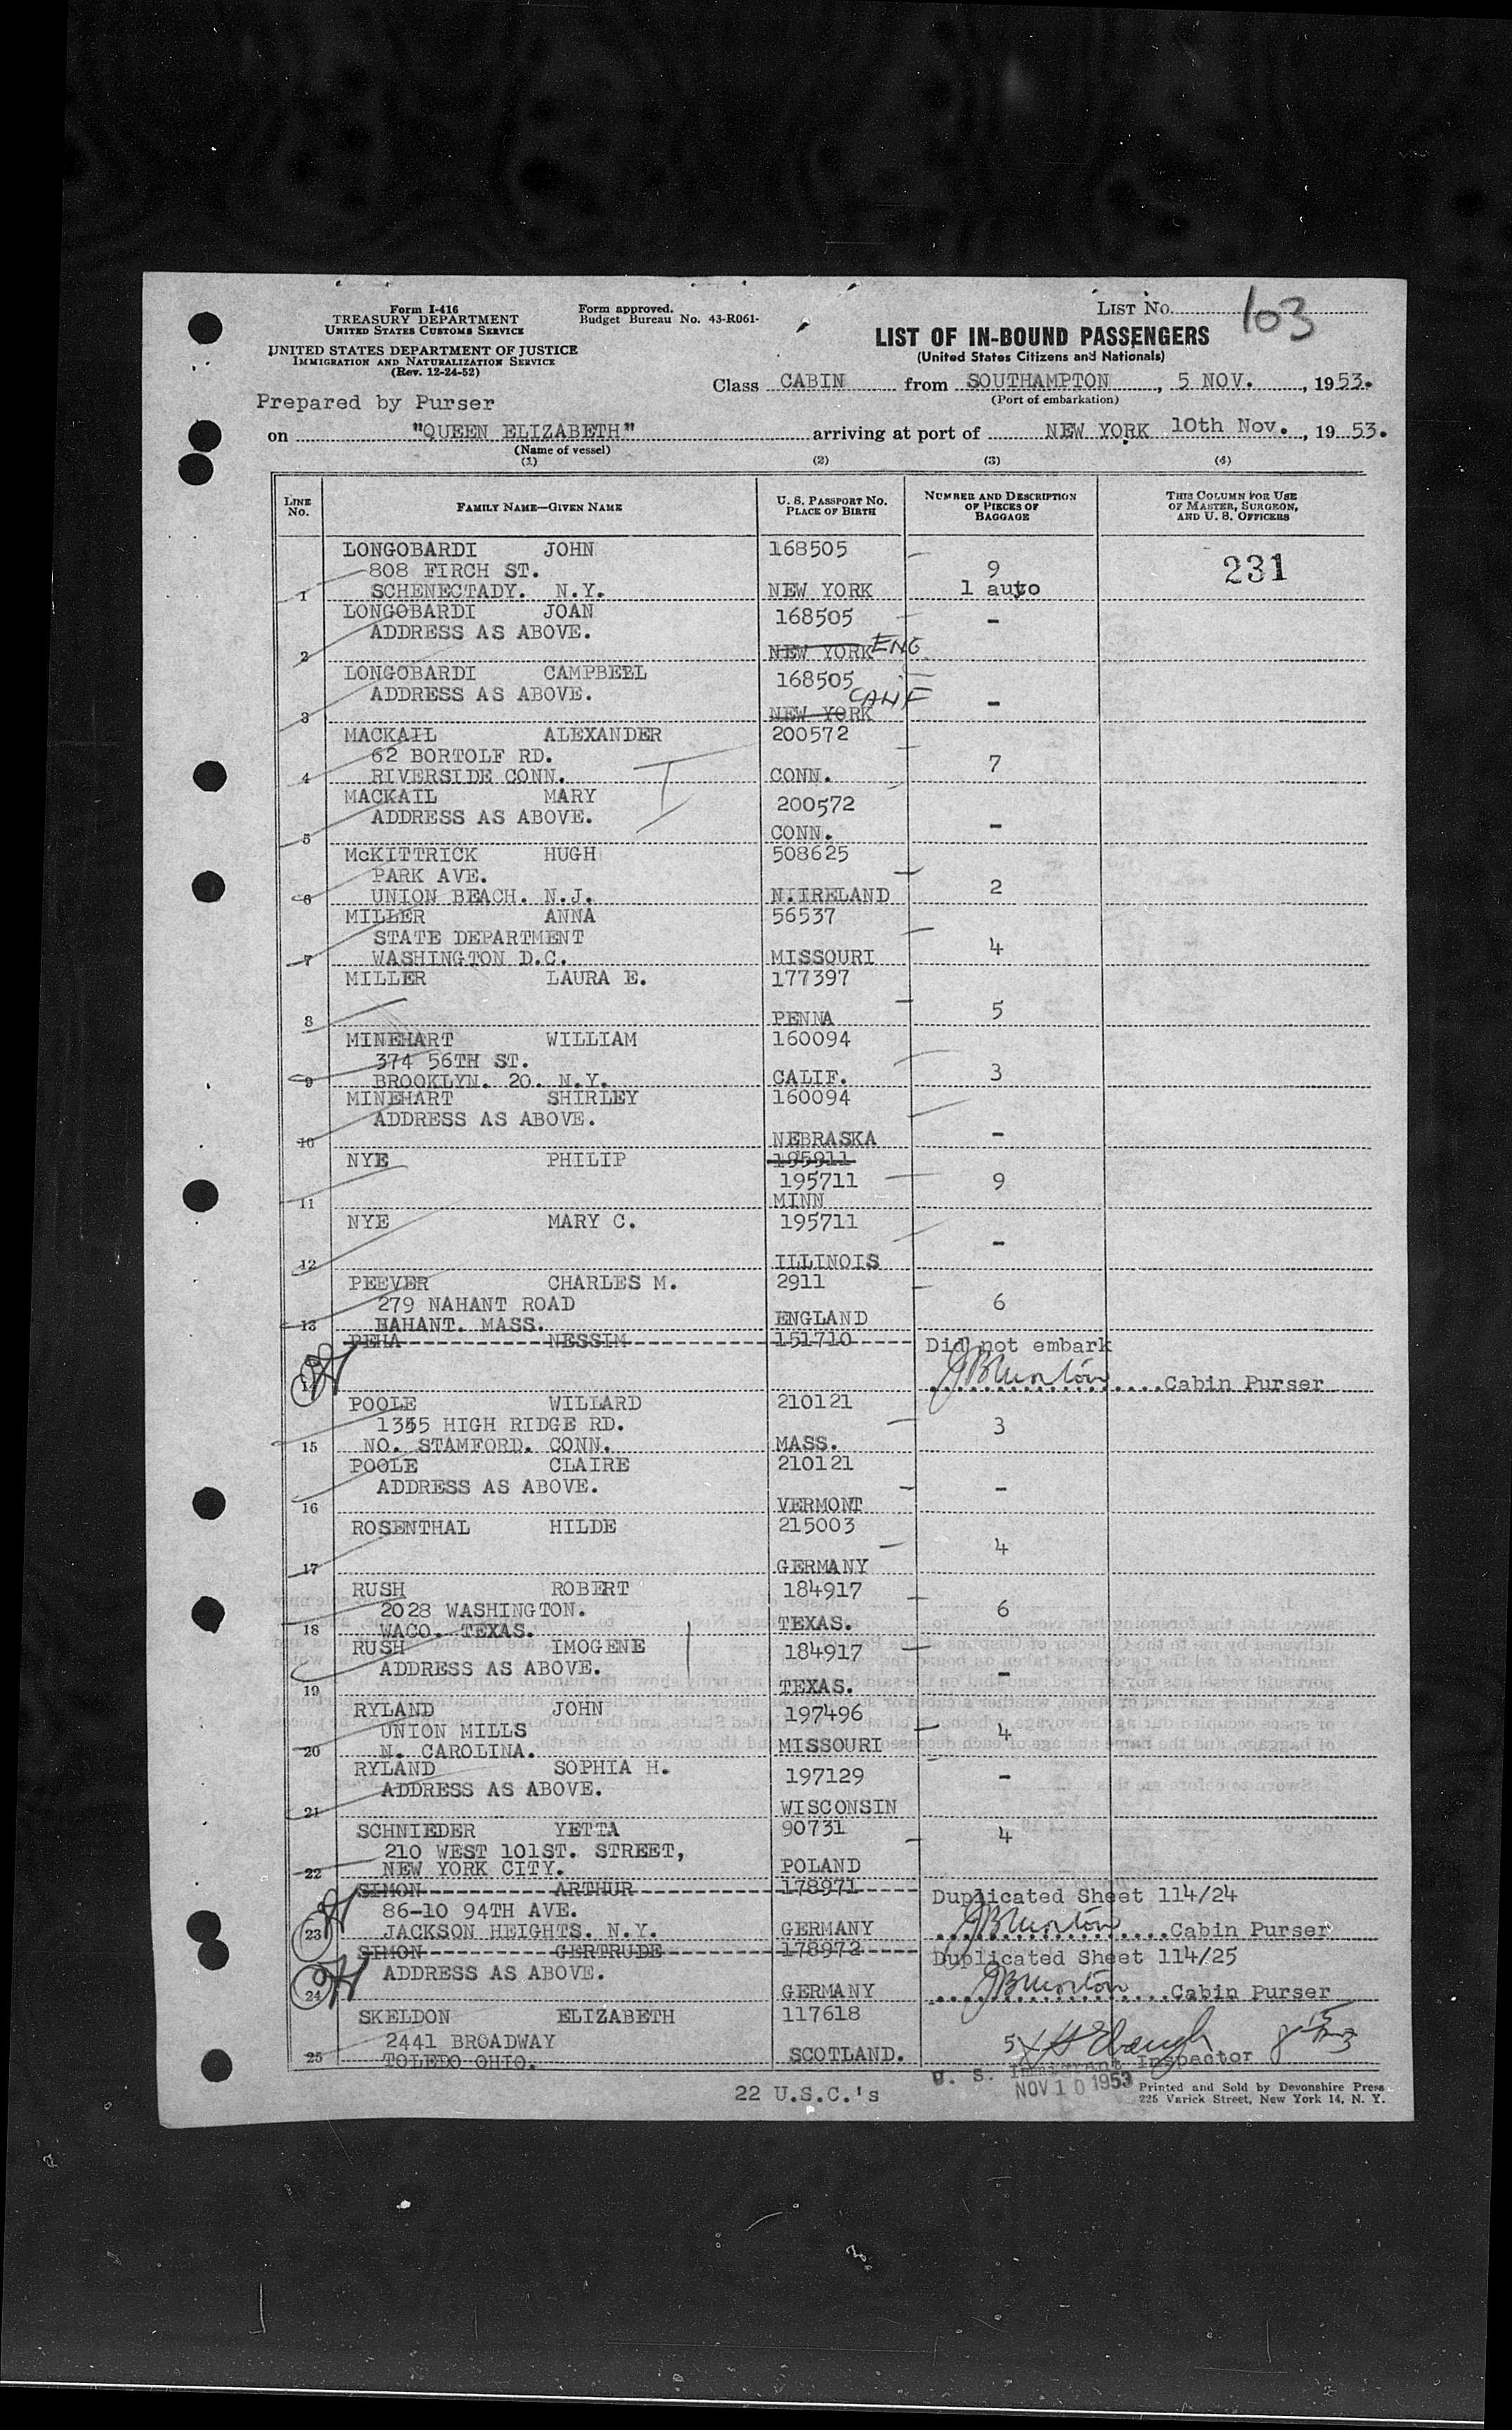 Form I-416
TREASURY DEPARTMENT
UNITED STATES CUSTOMS SERVICE
UNITED STATES DEPARTMENT OF JUSTICE
IMMIGRATION AND NATURALIZATION SERVICE
(Rev. 12-24-52)
Form approved.
Budget Bureau No. 43-R061-
LIST No. 103
LIST OF IN-BOUND PASSENGERS
(United States Citizens and Nationals)
Class CABIN from SOUTHAMPTON, 5 NOV., 1953.
(Port of embarkation)
Prepared by Purser
on "QUEEN ELIZABETH" arriving at port of NEW YORK 10th Nov., 1953.
(Name of vessel)
(1) (2) (3) (4)
LINE No. FAMILY NAME—GIVEN NAME U. S. PASSPORT No. PLACE OF BIRTH NUMBER AND DESCRIPTION OF PIECES OF BAGGAGE THIS COLUMN FOR USE OF MASTER, SURGEON, AND U. S. OFFICERS
LONGOBARDI JOHN 168505
808 FIRCH ST. 9 231
1 SCHENECTADY. N.Y. NEW YORK 1 auto
LONGOBARDI JOAN 168505 -
ADDRESS AS ABOVE.
2 NEW YORK ENG
LONGOBARDI CAMPBELL 168505
ADDRESS AS ABOVE. -
3 NEW YORK
MACKAIL ALEXANDER 200572
62 BORTOLF RD. 7
4 RIVERSIDE CONN. CONN.
MACKAIL MARY 200572
ADDRESS AS ABOVE. -
5 CONN.
McKITTRICK HUGH 508625
PARK AVE. 2
6 UNION BEACH. N.J. N.IIRELAND
MILLER ANNA 56537
STATE DEPARTMENT 4
7 WASHINGTON D.C. MISSOURI
MILLER LAURA E. 177397
5
8 PENNA
MINEHART WILLIAM 160094
374 56TH ST. 3
9 BROOKLYN. 20. N.Y. CALIF.
MINEHART SHIRLEY 160094
ADDRESS AS ABOVE. -
10 NEBRASKA
NYE PHILIP 195911
195711 9
11 MINN
NYE MARY C. 195711
-
12 ILLINOIS
PEEVER CHARLES M. 2911
279 NAHANT ROAD 6
13 HAHANT. MASS. ENGLAND
PEHA NESSIM 151710 Did not embark
14 JBMorton Cabin Purser
POOLE WILLARD 210121
1355 HIGH RIDGE RD. 3
15 NO. STAMFORD. CONN. MASS.
POOLE CLAIRE 210121
ADDRESS AS ABOVE. -
16 VERMONT
ROSENTHAL HILDE 215003
4
17 GERMANY
RUSH ROBERT 184917
2028 WASHINGTON. 6
18 WACO. TEXAS. TEXAS.
RUSH IMOGENE 184917
ADDRESS AS ABOVE. -
19 TEXAS.
RYLAND JOHN 197496
UNION MILLS 4
20 N. CAROLINA. MISSOURI
RYLAND SOPHIA H. 197129 -
ADDRESS AS ABOVE.
21 WISCONSIN
SCHNIEDER YETTA 90731 4
210 WEST 101ST. STREET,
22 NEW YORK CITY. POLAND
SIMON ARTHUR 178971 Duplicated Sheet 114/24
86-10 94TH AVE.
23 JACKSON HEIGHTS. N.Y. GERMANY JBMorton Cabin Purser
SIMON GERTRUDE 178972 Duplicated Sheet 114/25
ADDRESS AS ABOVE.
24 GERMANY JBMorton Cabin Purser
SKELDON ELIZABETH 117618
2441 BROADWAY 5
25 TOLEDO OHIO. SCOTLAND.
U. S. Immigrant Inspector
NOV 10 1953
22 U.S.C.'s
Printed and Sold by Devonshire Press
225 Varick Street, New York 14, N. Y.